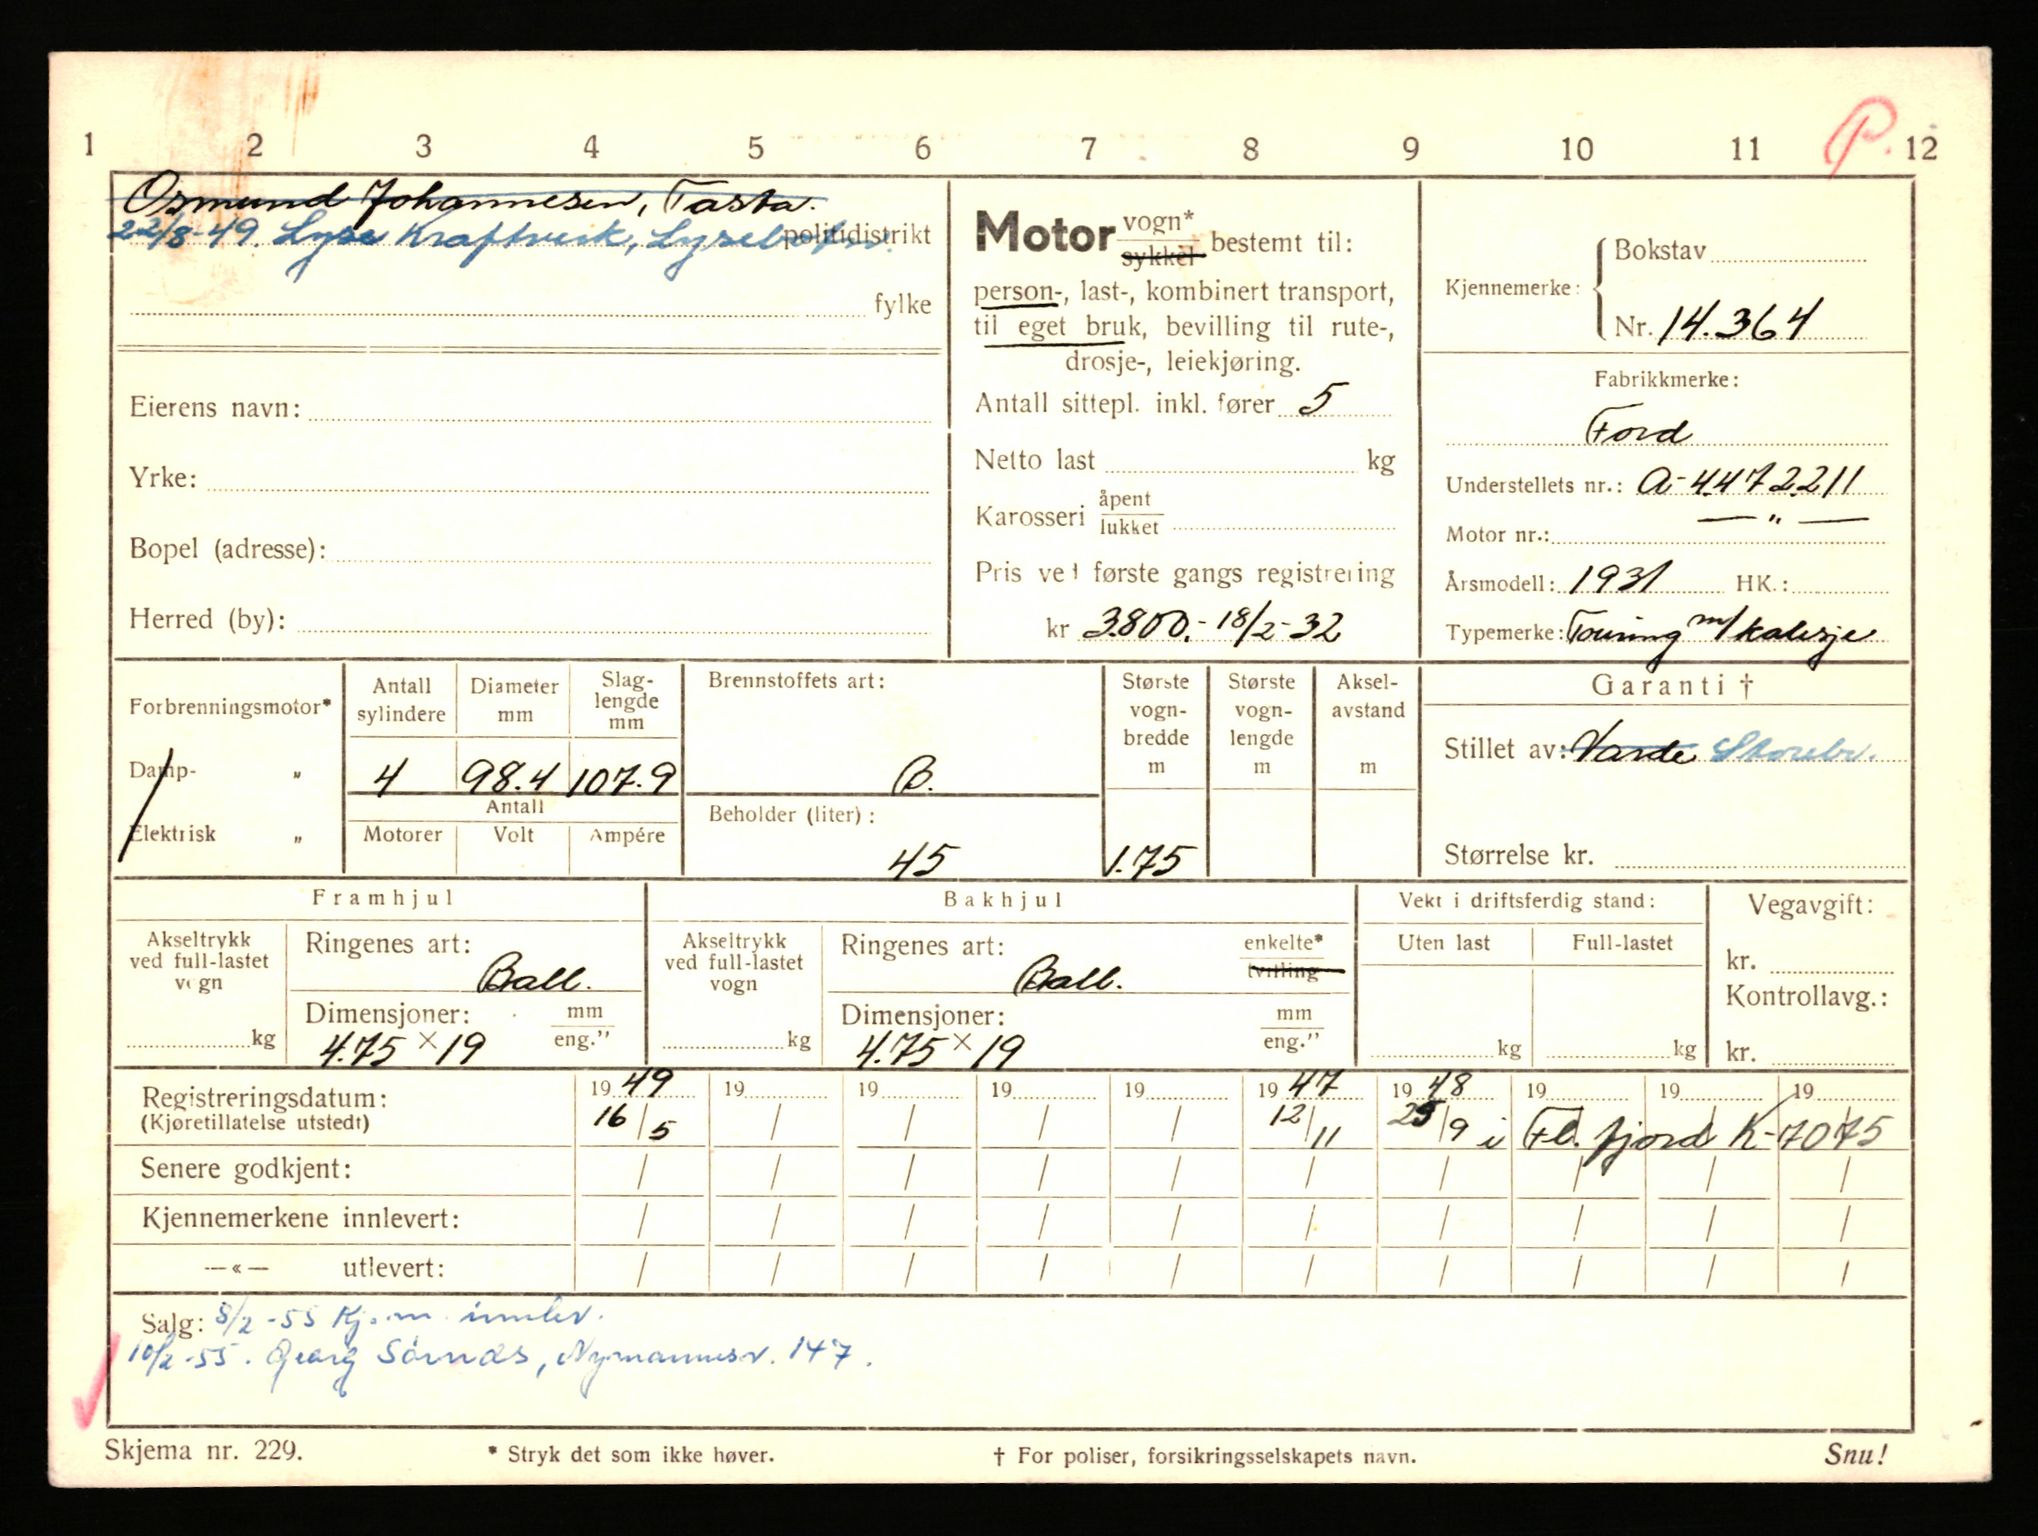 1 2 3 4 5 6 7 8 9 10 11 12
P.
Osmund Johannesen, Tasta.
22/8-49. Lyse Kraftverk, Lysebotn. politidistrikt
fylke
Eierens navn:
Yrke:
Bopel (adresse):
Herred (by):
Motor vogn* sykkel bestemt til:
person-, last-, kombinert transport,
til eget bruk, bevilling til rute-,
drosje-, leiekjøring.
Antall sittepl. inkl. fører 5
Netto last kg
Karosseri åpent lukket
Pris ved første gangs registrering
kr 3.800.- 18/2-32
Kjennemerke: Bokstav
Nr. 14.364
Fabrikkmerke:
Ford
Understellets nr.: A-4.472.211
Motor nr.: — " —
Årsmodell: 1931 HK.:
Typemerke: Touring m/kalesje
Forbrenningsmotor*
Damp- „
Elektrisk „
Antall sylindere
4
Diameter mm
98.4
Slag-lengde mm
107.9
Antall
Motorer Volt Ampére
Brennstoffets art:
B.
Beholder (liter):
45
Største vogn-bredde m
1.75
Største vogn-lengde m
Aksel-avstand m
Garanti †
Stillet av: Varde Storebr.
Størrelse kr.
Framhjul
Akseltrykk ved full-lastet vogn
kg
Ringenes art:
Ball.
Dimensjoner: mm eng.”
4.75 × 19
Bakhjul
Akseltrykk ved full-lastet vogn
kg
Ringenes art: enkelte* tvilling
Ball.
Dimensjoner: mm eng.”
4.75 × 19
Vekt i driftsferdig stand:
Uten last Full-lastet
kg kg
Vegavgift:
kr.
Kontrollavg.:
kr.
Registreringsdatum: 19 49 19 19 19 19 19 47 19 48 19 19 19
(Kjøretillatelse utstedt) 16/5 / / / / 12/11 25/9 i Fl. fjord K-7075
Senere godkjent: / / / / / / / / / /
Kjennemerkene innlevert: / / / / / / / / / /
—«— utlevert: / / / / / / / / / /
Salg: 5/2-55 Kj.m. innlev.
10/2-55. Georg Sørnes, Nymannsv. 147.
Skjema nr. 229. * Stryk det som ikke høver. † For poliser, forsikringsselskapets navn. Snu!